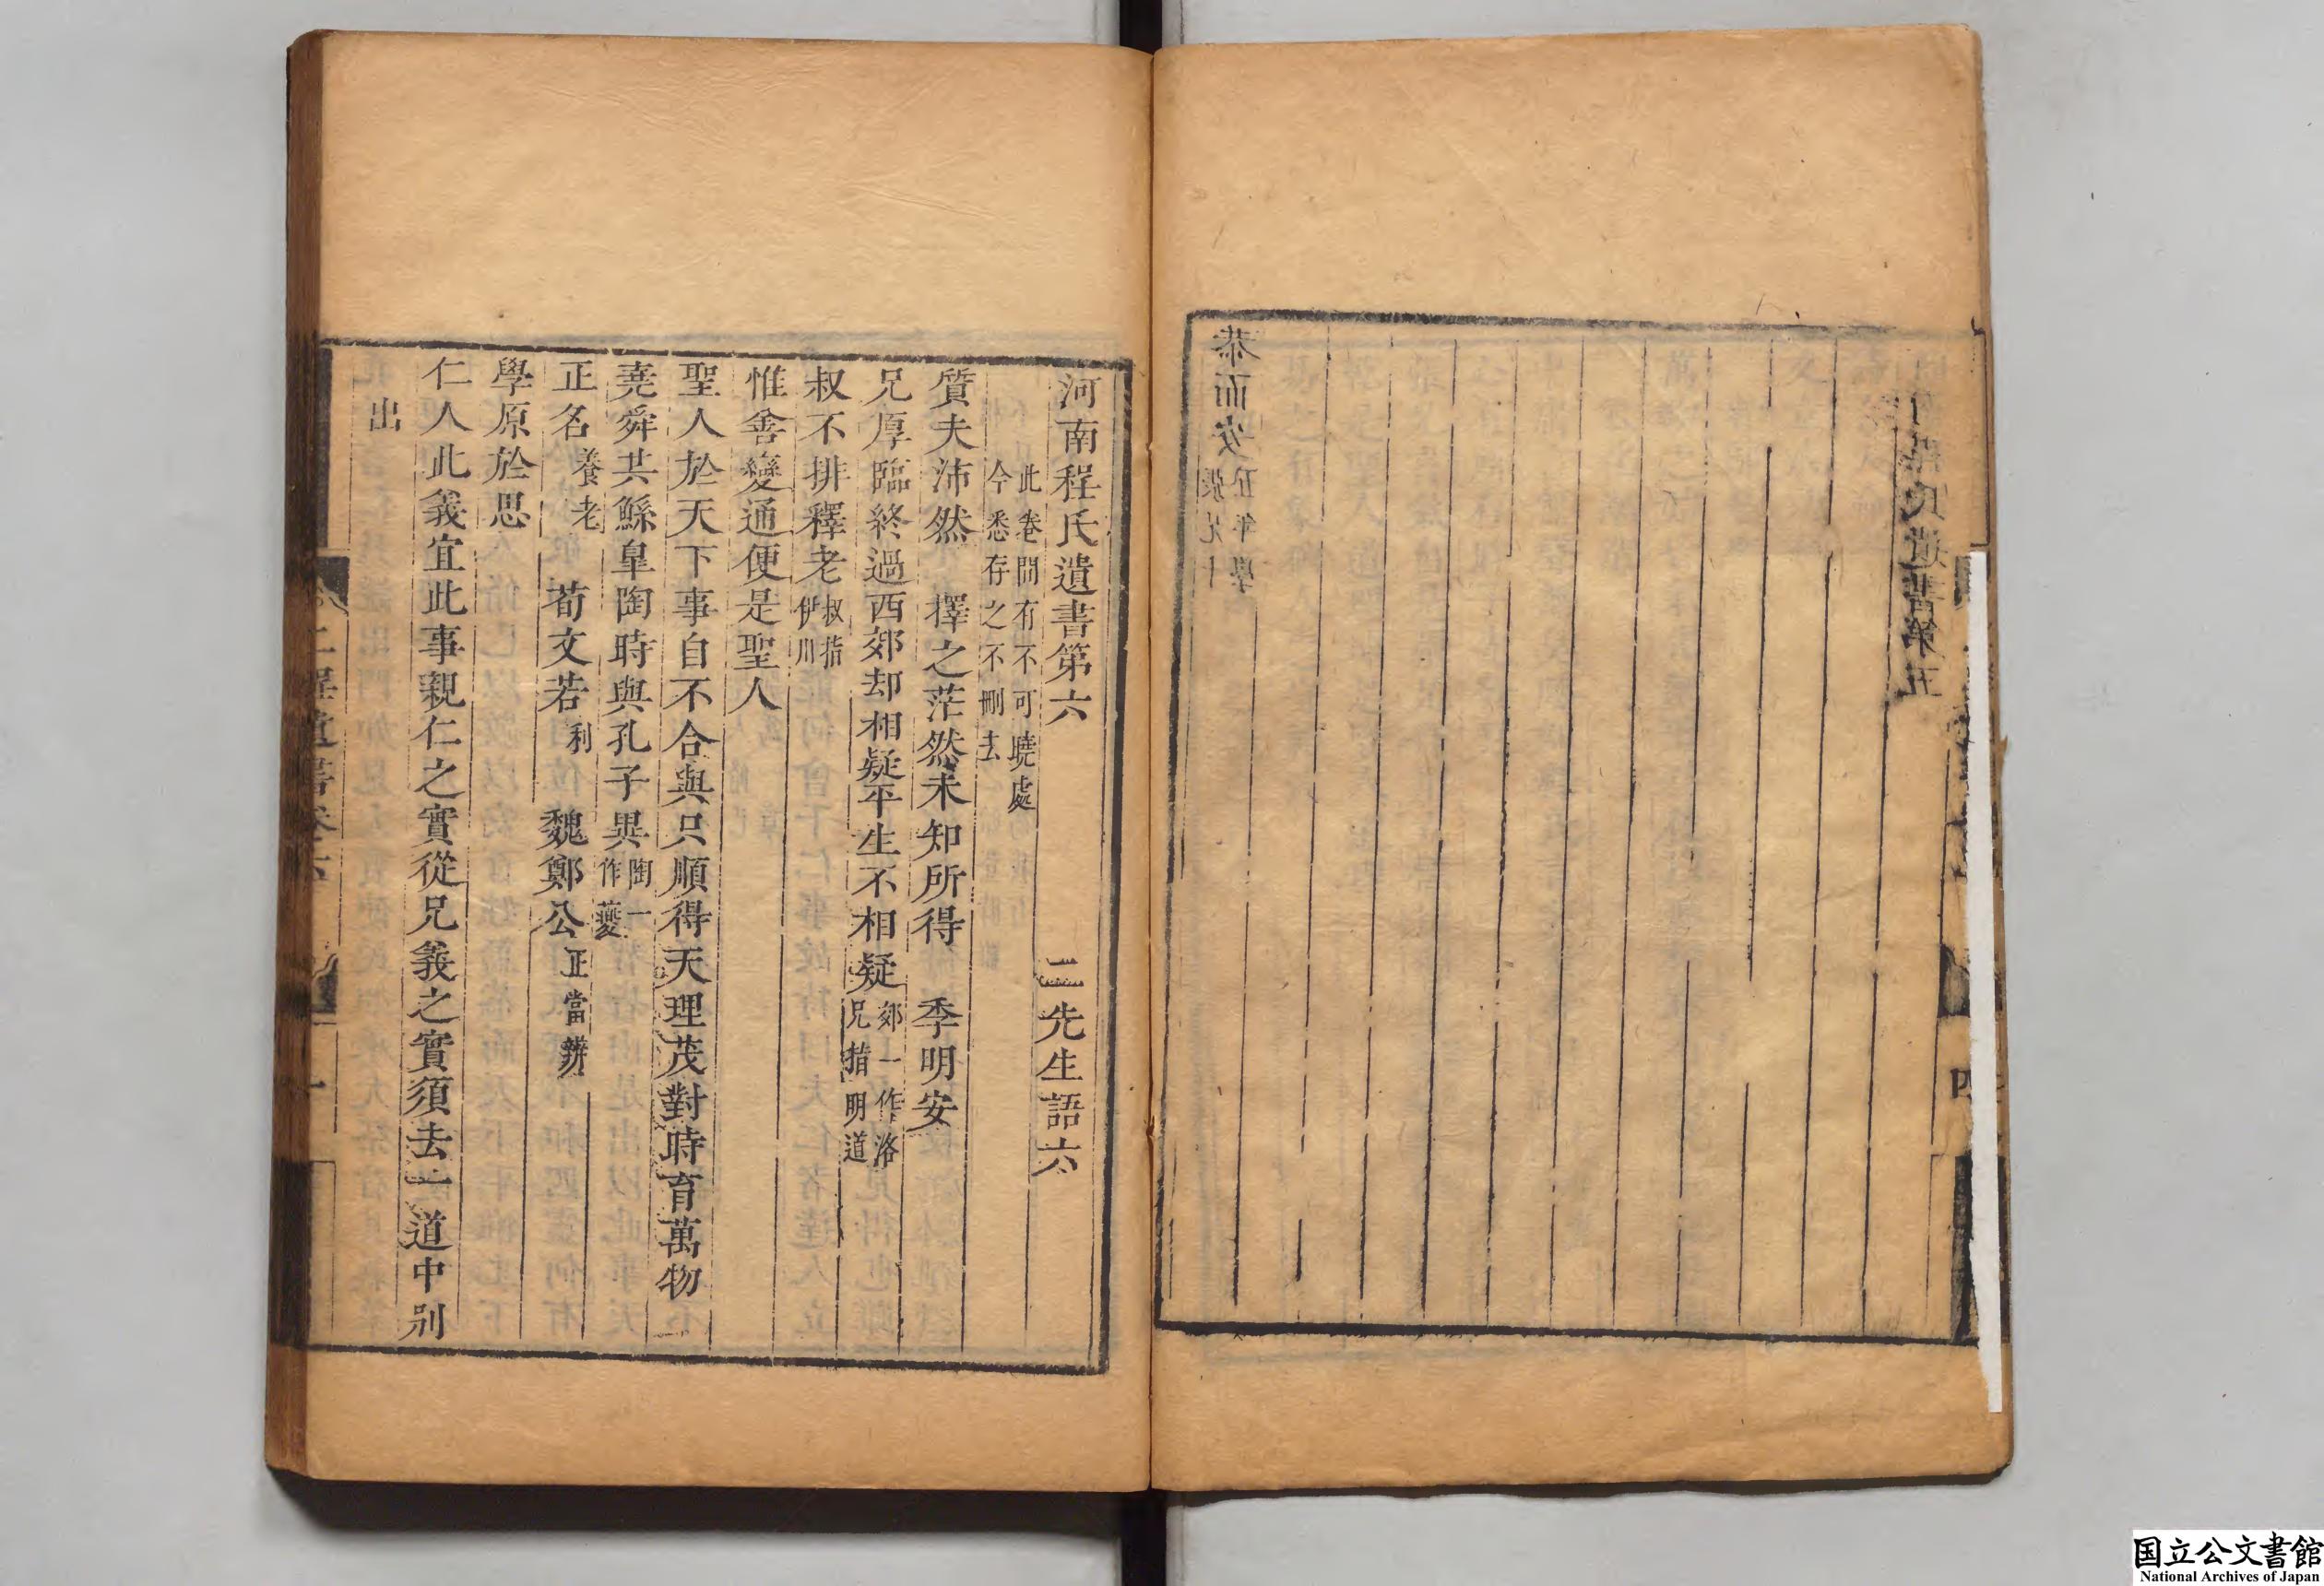 河南程氏遺書第六　二先生語六
此卷間有不可曉處
今悉存之不刪去
質夫沛然　擇之茫然未知所得　季明安
兄厚臨終過西郊却相疑平生不相疑郊一作洛
兄指明道
叔不排釋老叔指
伊川
惟善變通便是聖人
聖人於天下事自不合與只順得天理茂對時育萬物
堯舜共鯀皐陶時與孔子異陶一
作夔
正名養老　荀文若利　魏鄭公正當辨
學原於思
仁人此義宜此事親仁之實從兄義之實須去一道中別
出
国立公文書館
National Archives of Japan